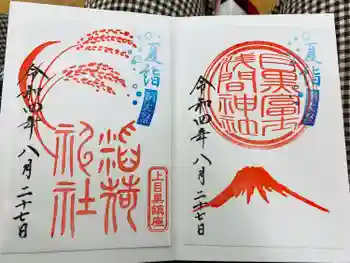 夏詣
令和四年八月二十七日
稲荷神社
上目黒鎮座
夏詣
目黒富士
浅間神社
令和四年八月二十七日